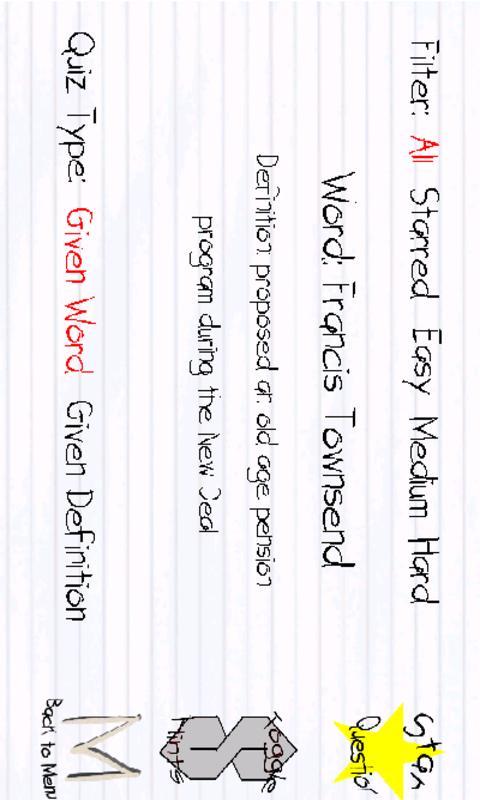 Filter: All Starred Easy Medium Hard
Word: Francis Townsend
Definition: proposed an old age pension
program during the New Deal
Quiz Type: Given Word Given Definition
Star
Question
Toggle
Hints
Back to Menu